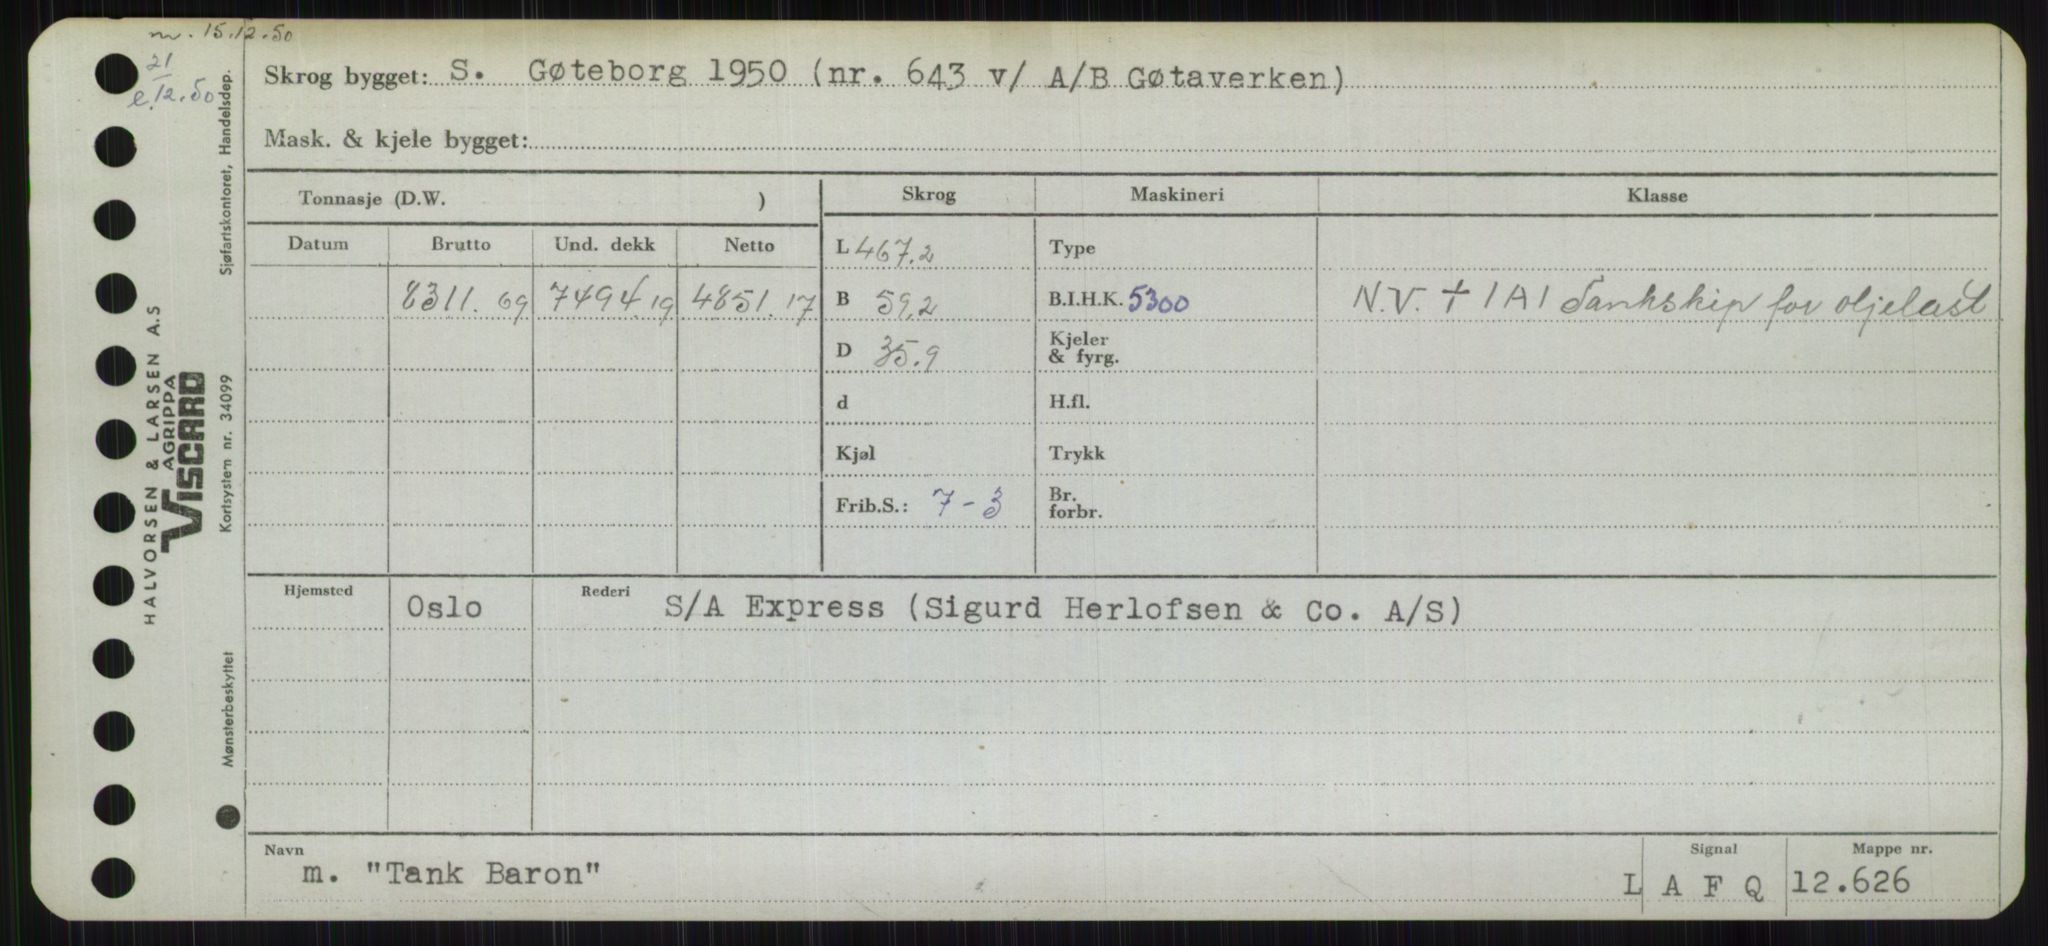 m. 15.12.50
21
e.12.50
Skrog bygget: S. Gøteborg 1950 (nr. 643 v/ A/B Gøtaverken)
Mask. & kjele bygget:
Tonnasje (D.W. )
Skrog
Maskineri
Klasse
Datum Brutto Und. dekk Netto
L 467.2
Type
8311.69 7494.19 4851.17
B 59.2
B.I.H.K. 5300
N.V. + 1A1 Tankskip for oljelast
D 35.9
Kjeler
& fyrg.
d
H.fl.
Kjøl
Trykk
Frib.S.: 7-3
Br.
forbr.
Hjemsted Oslo Rederi S/A Express (Sigurd Herlofsen & Co. A/S)
Navn
m. "Tank Baron"
Signal
L A F Q
Mappe nr.
12.626
HALVORSEN & LARSEN A.S
AGRIPPA
VISCARD
Mønsterbeskyttet Kortsystem nr. 34099 Sjøfartskontoret, Handelsdep.